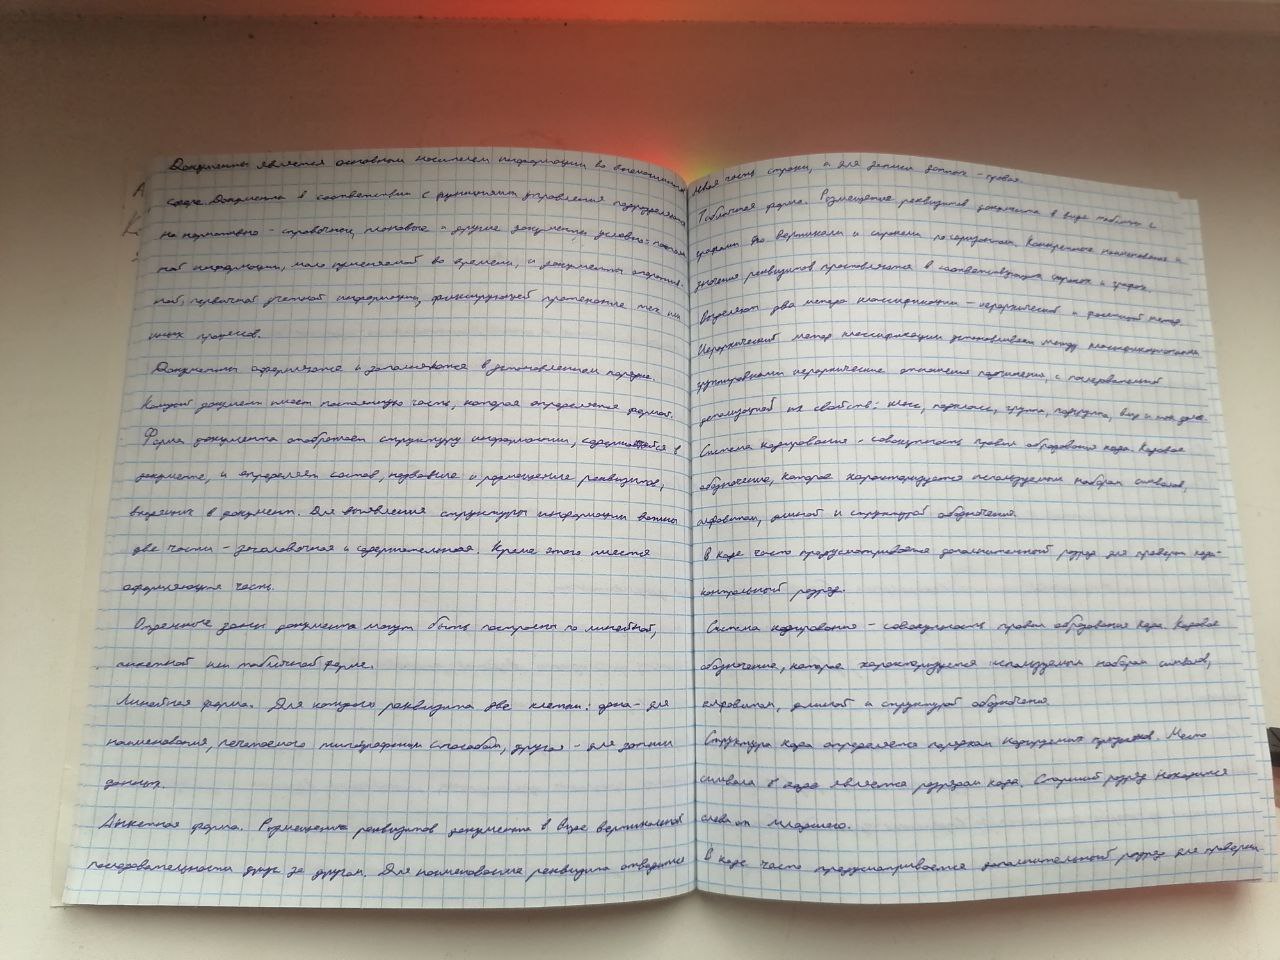 Документы является основным носителем информации во внемашинной
сфере. Документа в соответствии с функциями управления подразделяются
на нормативно - справочные, плановые и другие документы условно-постоян
ной информации, мало изменяемой во времени, и документы оператив-
ной, первичной учетной информации, фиксирующей протекание тех или
иных процессов.
Документы оформляются и заполняются в установленном порядке.
Каждый документ имеет постоянную часть, которая определяется формой.
Форма документа отображает структуру информации, содержащейся в
документе, и определяет состав, название и размещение реквизитов,
входящих в документ. Для выявления структуры информации важны
две части - заголовочная и содержательная. Кроме этого имеется
оформляющая часть.
Отдельные зоны документа могут быть построены по линейной,
анкетной или табличной форме.
Линейная форма. Для каждого реквизита две клетки: одна - для
наименования, печатаемого типографским способом, другая - для записи
данных.
Анкетная форма. Размещение реквизитов документа в виде вертикальной
последовательности друг за другом. Для наименование реквизита отводится
левая часть строки, а для записи данных - правая.
Табличная форма. Размещение реквизитов документа в виде таблицы с
графами по вертикали и строками по горизонтали. Конкретные наименования и
значения реквизитов проставляются в соответствующих строках и графах.
Выделяют два метода классификации - иерархический и фасетный метод.
Иерархический метод классификации устанавливает между классификационными
группировками иерархические отношения подчинения, с последовательной
детализацией их свойств: класс, подкласс, группа, подгруппа, вид и так далее.
Система кодирования - совокупность правил образования кода. Кодовое
обозначение, которое характеризуется используемым набором символов,
алфавитом, длиной и структурой обозначения.
В коде часто предусматривается дополнительный разряд для проверки кода-
контрольный разряд.
Система кодирования - совокупность правил образования кода. Кодовое
обозначение, которое характеризуется используемым набором символов,
алфавитом, длиной и структурой обозначения
Структура кода определяется порядком кодируемых признаков. Место
символа в коде является разрядом кода. Старший разряд находится
слева от младшего.
В коде часто предусматривается дополнительный разряд для проверки